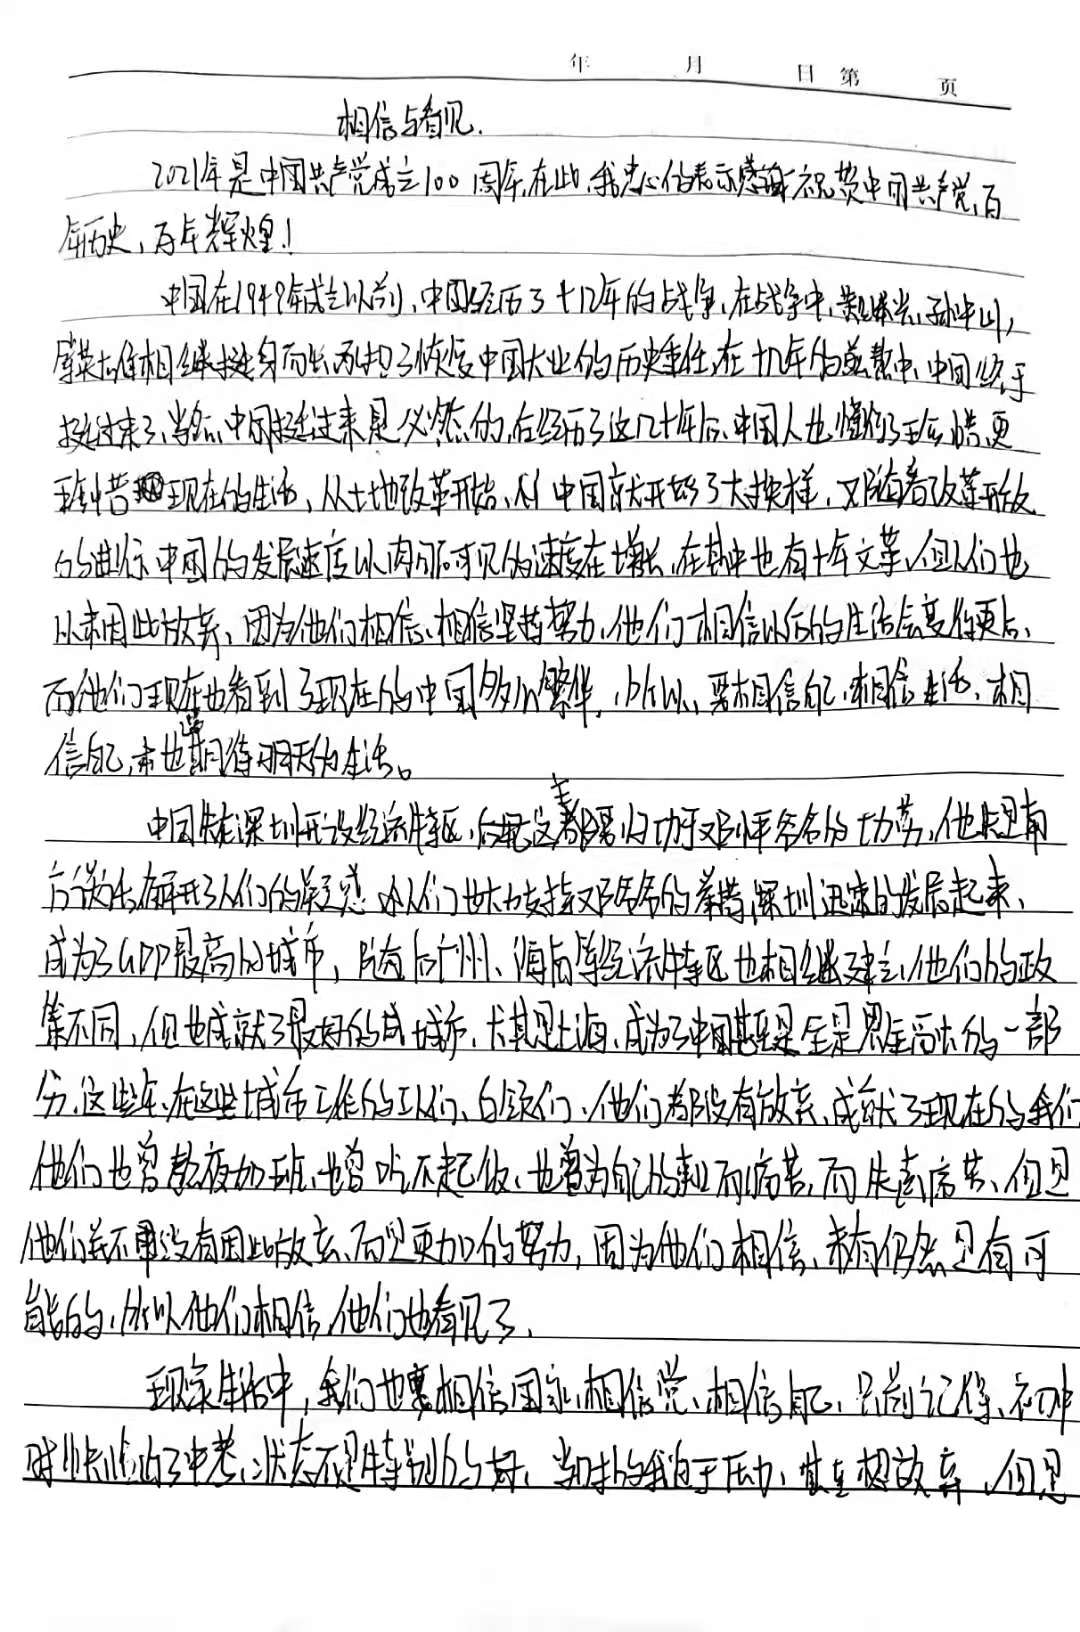 年 月 日 第 页
相信与看见.
2021年是中国共产党成立100周年,在此,我忠心的表示感谢,祝贺中国共产党,百
年历史,百年辉煌!
中国在1949年成立以前,中国经历了十几年的战争,在战争中,黄继光、孙中山,
相继挺身而出,承担了恢复中国大业的历史重任,在十几年的中,中国终于
挺过来了,当然,中国挺过来是必然的,在经历了这几十年后,中国人也懂得了珍惜,更
珍惜现在的生活,从土地改革开始,从中国就开始了大换样,又随着改革开放
的进行中国的发展速度以肉眼可见的速度在增长,在其中也有十年文革,但人们也
从未因此放弃,因为他们相信,相信坚持努力,他们相信以后的生活会变得更好,
而他们现在也看到了现在的中国多么繁华,所以,要相信自己,相信生活,相
信自己,也期待明天的生活。
中国先在深圳开设经济特区,这主要归功于邓爷爷的功劳,他是南
方谈话,解开了人们的疑惑,人们也大力支持邓爷爷的举措,深圳迅速的发展起来,
成为了GDP最高的城市,随后广州、海南等经济特区也相继建立,他们的政
策不同,但也成就了最好的城市,尤其是上海,成为了中国甚至是全是是至高的一部
分,这些年,在这些城市工作的工人们、白领们,他们都没有放弃,成就了现在的我们
他们也曾熬夜加班,也曾吃不起饭,也曾为自己的事业而痛苦,而失意痛苦,但是
他们并不单没有因此放弃,而是更加的努力,因为他们相信,未有仍然是有可
能的,所以他们相信,他们也看见了,
现实生活中,我们也要相信国家,相信党,相信自己,只前记得,初中
时快临的了中考,状态不是特别的好,当时的我迫于压力,甚至想放弃,但是